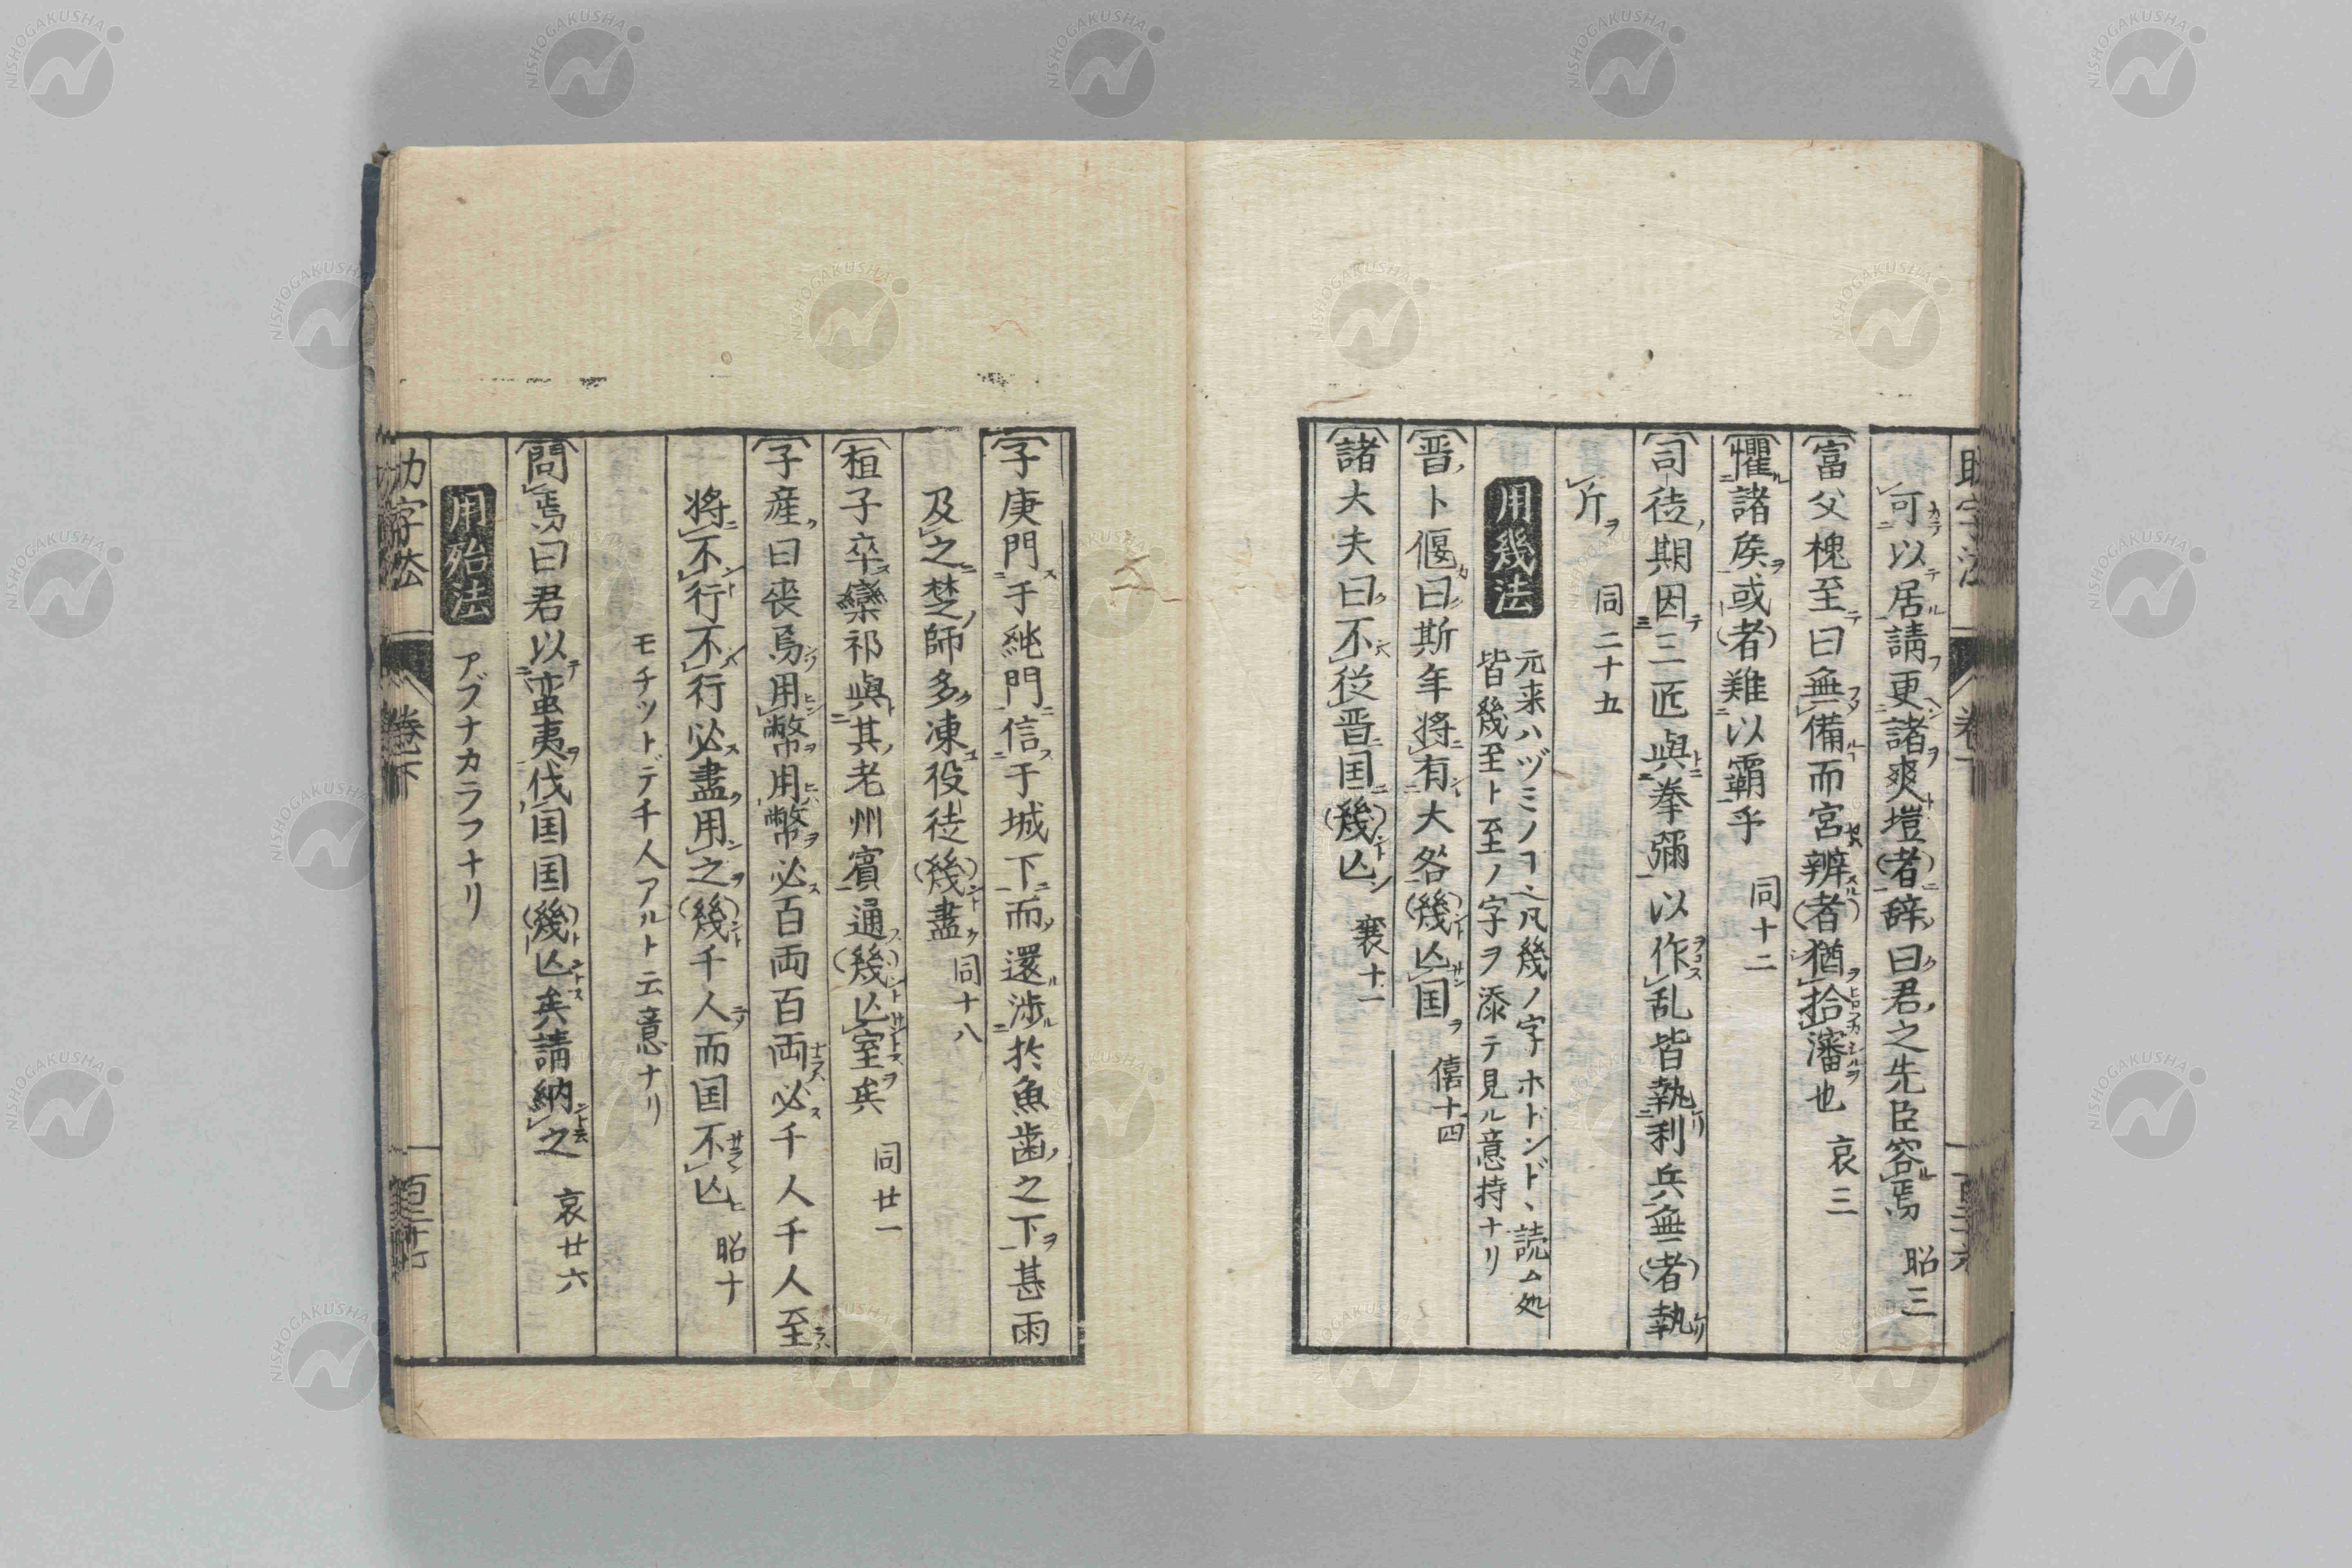 可以居請更諸爽塏者辞曰君之先臣容焉 昭三
富父槐至曰無備而宮辨者猶拾瀋也 哀三
懼諸矦或者難以霸乎 同十二
司徒期因三匠與拳彌以作乱皆執利兵無者執
斤 同二十五
用幾法
元来ハヅミノヿ也凡幾ノ字ホドンド、読ム処
皆幾至ト至ノ字ヲ添テ見ル意持ナリ
晋卜偃曰斯年将有大咎幾亾国 僖十四
諸大夫曰不從晋国幾亾 襄十一
子庚門于純門信于城下而還渉於魚歯之下甚雨
及之楚師多凍役徒幾盡 同十八
桓子卒欒祁與其老州賓通幾亾室矣 同廿一
子産曰喪焉用幣用幣必百両百両必千人千人至
将不行不行必盡用之幾千人而国不亾 昭十
モチットデチ人アルト云意ナリ
問焉曰君以蛮夷伐国国幾亾矣請納之 哀廿六
用殆法
アブナカラフナリ
助字法 巻下